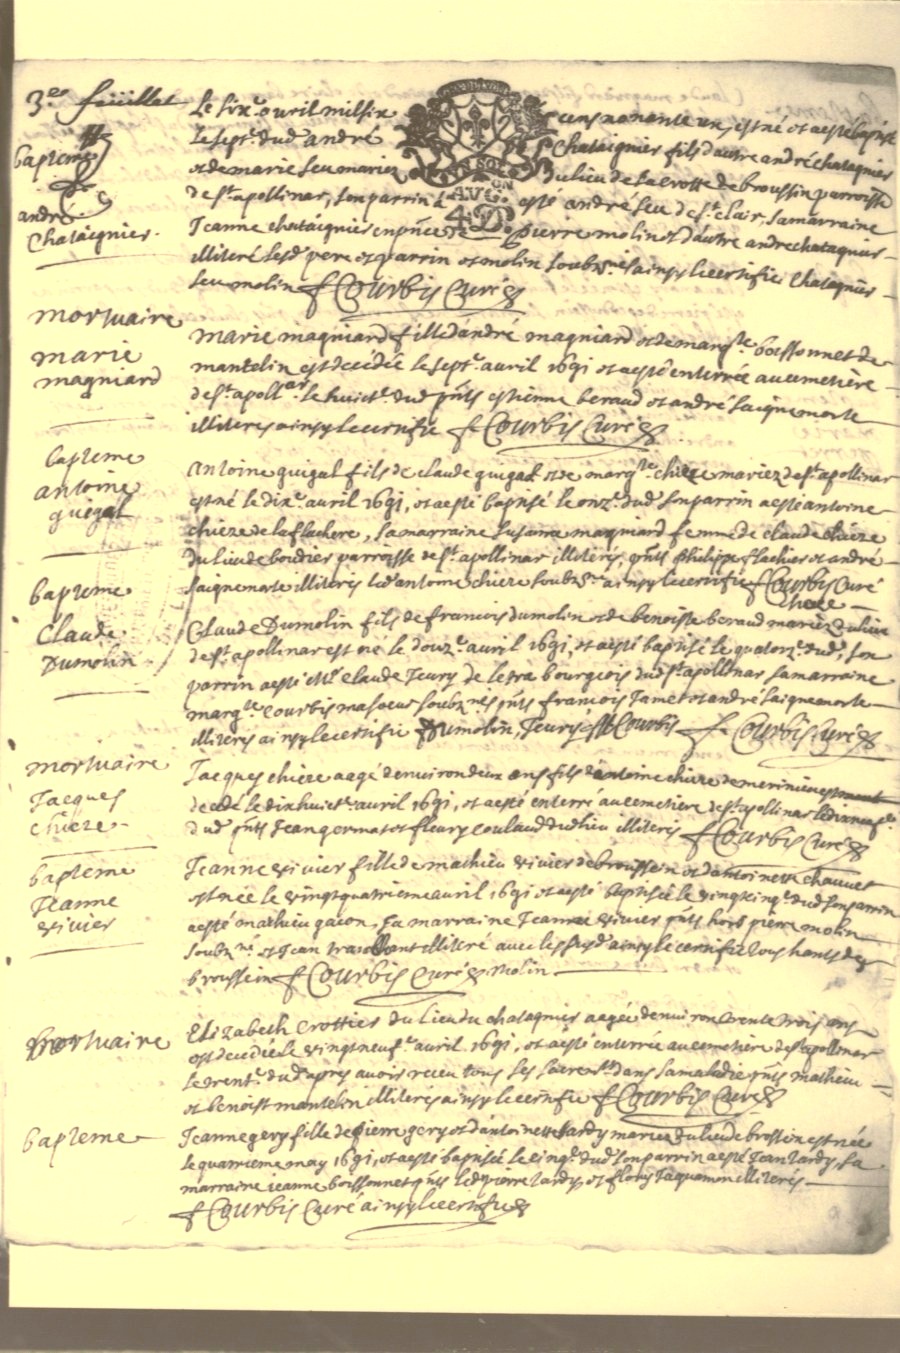 3.e feüillet
Le six.e avril mil six cens nonante un, est né et aesté baptisé
bapteme
Le sept.e dud andré Chataignier fils dautre andré chataignier
et de marie seu mariez du lieu de la crotte de broussin parroisse
andré
de s.t apollinar, son parrin a esté andré seu de s.t clair, sa marraine
Chataignier.
Jeanne chataignier en p.nce de pierre molin et dautre andre chataignier
illiteré les d. pere et parrin et molin soubz.nés ainsy le certifie chataignier
seu molin Courbis Curé
A. V. G.ON
4. D.
mortuaire
marie
magniard
marie magniard fille dandré magniard et de marg.te boissonnet de
mantelin est décédée le sept.e avril 1691 et aesté enterrée au cemetière
de s.t apoll.ar le huict.e dud p.nts estienne beraud et andré saignemorte
illiteres ainsy le certifie Courbis Curé
bapteme
antoine
guigal
antoine guigal fils de claude guigal et de marg.te chieze mariez de s.t apollinar
est né le dix.e avril 1691, et aesté baptisé le onz.e dud son parrin aesté antoine
chieze de la flachere, sa marraine susanne magniard femme de claude chieze
du lieu de boudier parroisse de s.t apollinar illiteres, p.nts philippe flachier et andré
saignemorte illiteres led antoine chieze soubz.né ainsy le certifie Courbis Curé
Chieze
bapteme
Claude
Dumolin
Claude Dumolin fils de francois dumolin et de benoiste beraud mariez du lieu
de s.t apollinar est né le douz.e avril 1691, et aesté baptisé le quatorz.e dud, son
parrin aesté M.r Claude Jeury de Letra bourgeois dud s.t apollinar sa marraine
marg.te Courbis ma soeur soubz.nés p.nts francois Jamet et andré saignemorte
illiteres ainsy le certifie Dumolin, Jeury Courbis Courbis Curé
mortuaire
Jacques
chieze
Jacques chieze aagé denviron deux ans fils dantoine chieze de
decedé le dixhuict.e avril 1691, et aesté enterré au cemetiere de s.t apollinar le dixneuf.e
dud p.nts Jean germat et fleury coulaud dud lieu illiteres Courbis Curé
bapteme
Jeanne
vivier
Jeanne vivier fille de mathieu vivier de broussin et dantoinette chauvet
est née le vingtquatrieme avril 1691 et aesté baptisée le vingtcinq.e dud son parrin
aesté mathieu gacon, sa marraine Jeanne vivier p.nts hors pierre molin
soubz.né et Jean illiteré avec les susd ainsy le certifie tous habts de
broussin Courbis Curé molin
mortuaire
Elizabeth Crottier du lieu du chataignier aagée denviron trente trois ans
est decedée le vingtneuf.e avril 1691, et aesté enterrée au cemetiere de s.t apollinar
le trent.e dud apres avoir receu tous les sacrem.ts dans sa maladie p.nts mathieu
et benoist mantelin illiterés ainsy le certifie Courbis Curé
bapteme
Jeanne gery fille de pierre gery et dantoinette tardy mariez du lieu de brossin est née
le quatrieme may 1691, et aesté baptisée le cinq.e dud son parrin aesté Jean tardy, sa
marraine jeanne boissonnet p.nts led pierre tardy, et illiterés
Courbis Curé ainsy le certifie